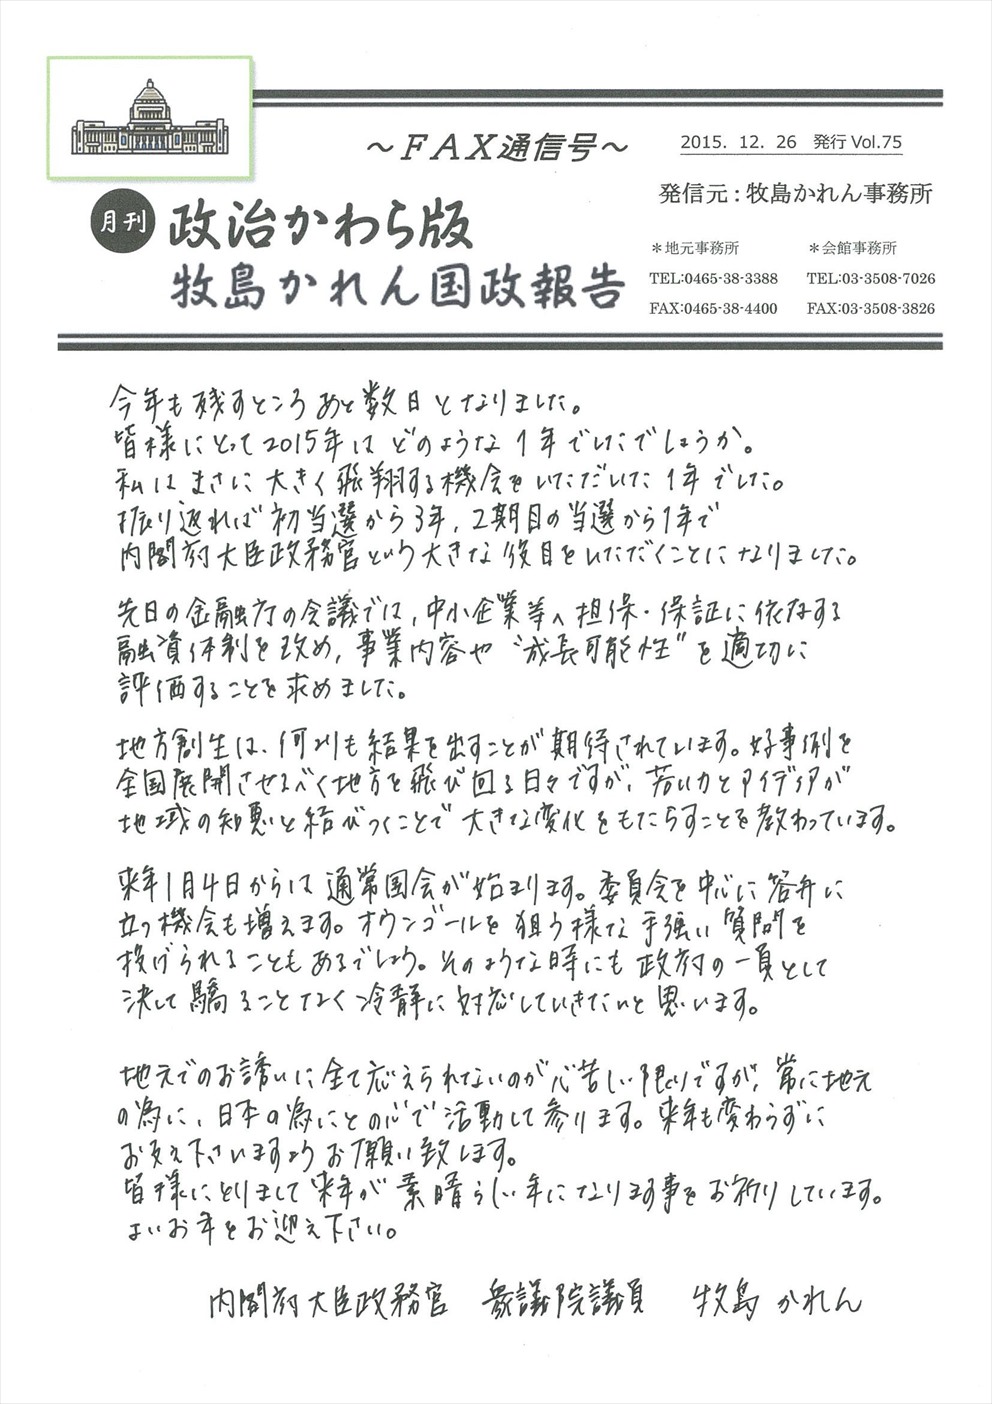 ～FAX通信号～
2015. 12. 26 発行 Vol.75
発信元：牧島かれん事務所
月刊 政治かわら版
牧島かれん国政報告
＊地元事務所
TEL:0465-38-3388
FAX:0465-38-4400
＊会館事務所
TEL:03-3508-7026
FAX:03-3508-3826
今年も残すところあと数日となりました。
皆様にとって2015年はどのような1年でしたでしょうか。
私はまさに大きく飛翔する機会をいただいた1年でした。
振り返れば初当選から3年，2期目の当選から1年で
内閣府大臣政務官という大きな役目をいただくことになりました。
先日の金融庁の会議では，中小企業等へ担保・保証に依存する
融資体制を改め，事業内容や“成長可能性”を適切に
評価することを求めました。
地方創生は、何よりも結果を出すことが期待されています。好事例を
全国展開させるべく地方を飛び回る日々ですが、若い力とアイディアが
地域の知恵と結びつくことで大きな変化をもたらすことを教わっています。
来年1月4日からは通常国会が始まります。委員会を中心に答弁に
立つ機会も増えます。オウンゴールを狙う様な手強い質問を
投げられることもあるでしょう。そのような時にも政府の一員として
決して驕ることなく冷静に対応していきたいと思います。
地元でのお誘いに全て応えられないのが心苦しい限りですが、常に地元
の為に、日本の為にとの心で活動して参ります。来年も変わらずに
お支え下さいますようお願い致します。
皆様にとりまして来年が素晴らしい年になります事をお祈りしています。
よいお年をお迎え下さい。
内閣府大臣政務官 衆議院議員 牧島かれん